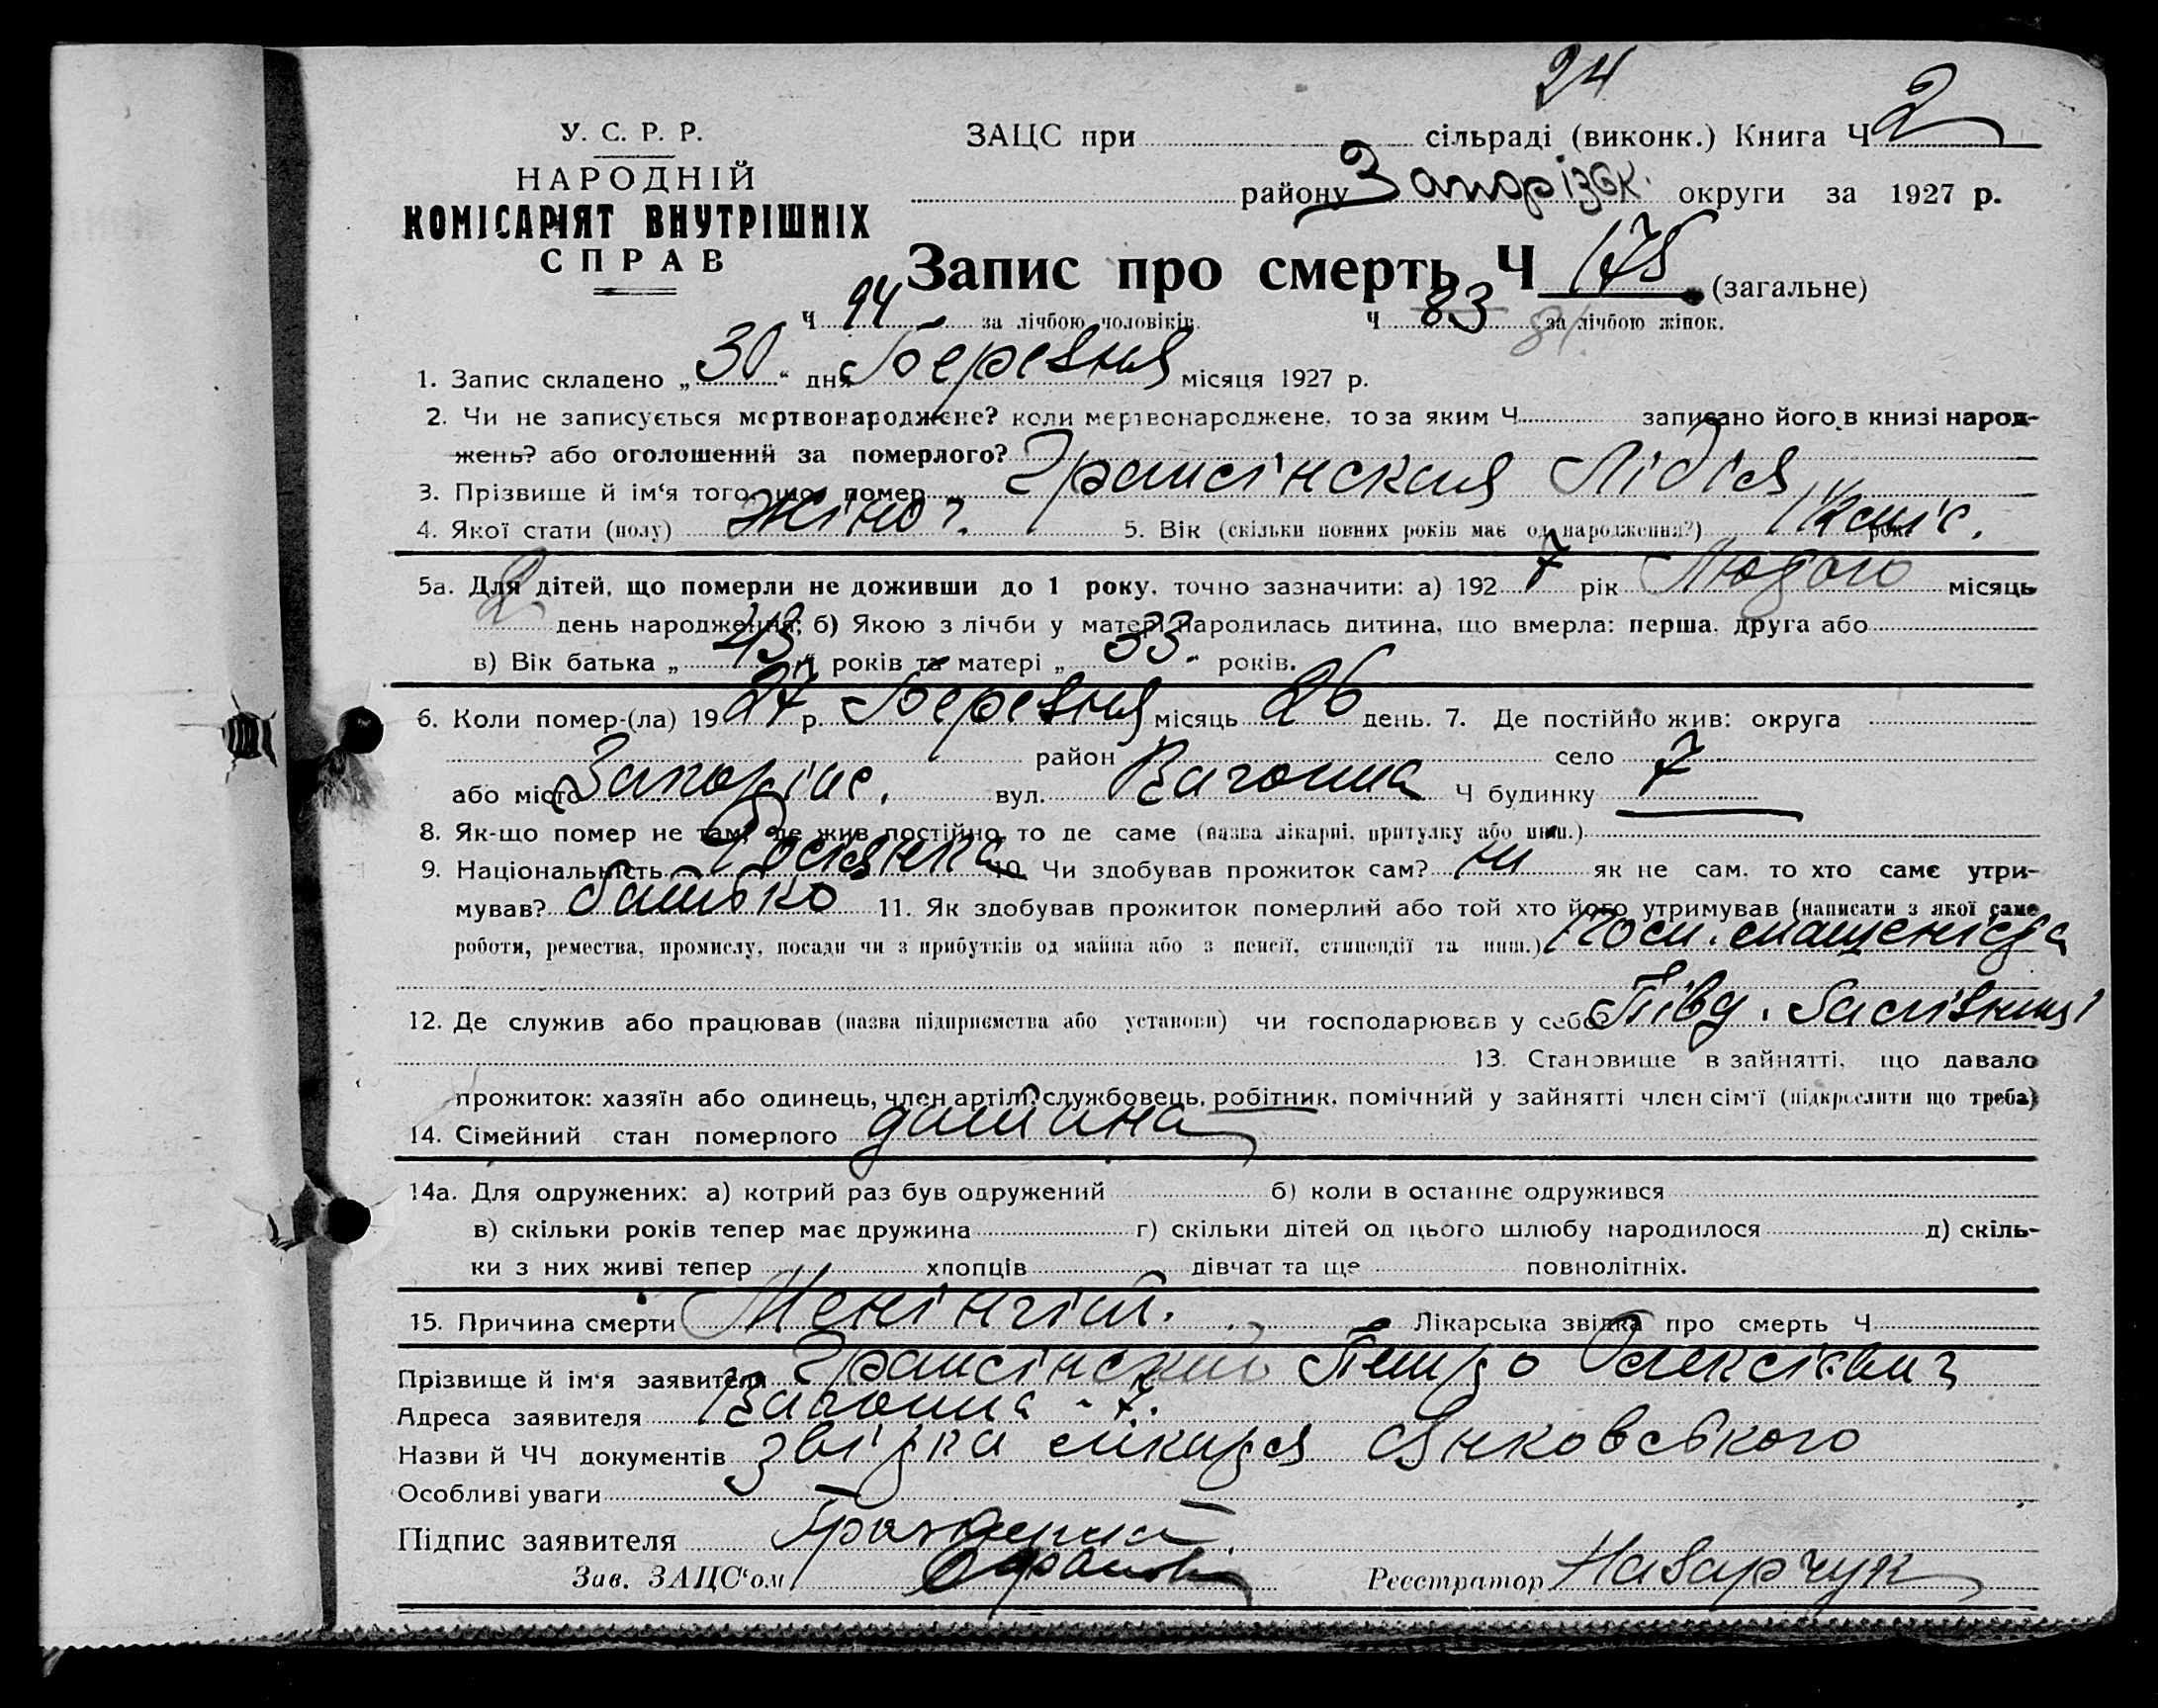 24
У. С. Р. Р.
НАРОДНІЙ
КОМІСАРІЯТ ВНУТРІШНІХ
СПРАВ
ЗАЦС при сільраді (виконк.) Книга Ч 2
району Запорізьк. округи за 1927 р.
Запис про смерть Ч 175 (загальне)
Ч 94 за лічбою чоловіків. Ч 83 за лічбою жінок.
81.
1. Запис складено „30“ дня Березня місяця 1927 р.
2. Чи не записується мертвонароджене? коли мертвонароджене, то за яким Ч записано його в книзі народ-
жень? або оголошений за померлого?
3. Прізвище й ім‘я того, що помер Лідія
4. Якої стати (полу) Жіноч. 5. Вік (скільки повних років має од народження?) 1½ міс. рок.
5а. Для дітей, що померли не доживши до 1 року, точно зазначити: а) 1927 рік Лютого місяць
2 день народження; б) Якою з лічби у матері народилась дитина, що вмерла: перша, друга або
в) Вік батька „43“ років та матері „33“ років.
6. Коли помер-(ла) 1927 р. Березня місяць 26 день. 7. Де постійно жив: округа
район село
або місто Запоріж. вул. Вагонна Ч будинку 7
8. Як-що помер не там, де жив постійно, то де саме (назва лікарні, притулку або инш.)
9. Національність Росіянка 10. Чи здобував прожиток сам? ні як не сам, то хто саме утри-
мував? батько 11. Як здобував прожиток померлий або той хто його утримував (написати з якої саме
роботи, ремества, промислу, посади чи з прибутків од майна або з пенсії, стипендії та инш.)
12. Де служив або працював (назва підприємства або установи) чи господарював у себе Півд.
13. Становище в зайнятті, що давало
прожиток: хазяїн або одинець, член артілі, службовець, робітник, помічний у зайнятті член сім‘ї (підкреслити що треба)
14. Сімейний стан померлого дитина
14а. Для одружених: а) котрий раз був одружений б) коли в останнє одружився
в) скільки років тепер має дружина г) скільки дітей од цього шлюбу народилося д) скіль-
ки з них живі тепер хлопців дівчат та ще повнолітніх.
15. Причина смерти Менінгіт. Лікарська звідка про смерть Ч
Прізвище й ім‘я заявителя Петро Олексієвич
Адреса заявителя Вагонна - 7.
Назви й ЧЧ документів звідка лікаря Янковського
Особливі уваги
Підпис заявителя
Зав. ЗАЦС‘ом Реєстратор Назарчук